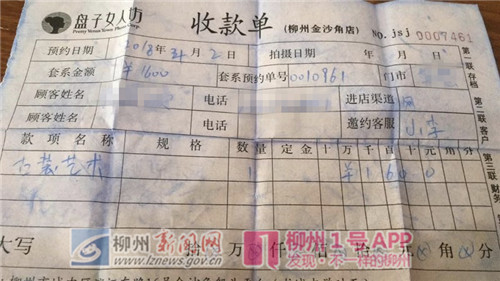 盘子女人坊
收款单 (柳州金沙角店) No. jsj 0007461
预约日期 2018年 月2日 拍摄日期 年 月 日
套系金额 ¥1600 套系预约单号 0010961 门市
顾客姓名 电话 进店渠道 网
顾客姓名 电话 邀约客服 小李
款项名称 规格 数量 定金 十万千百十元角分
古装艺术 1 ¥1600
大写 拾 万 仟 佰 拾 元 角 分
第一联存档
第二联客户
第三联财务
柳州新闻网
www.lznews.gov.cn
柳州1号APP
发现·不一样的柳州